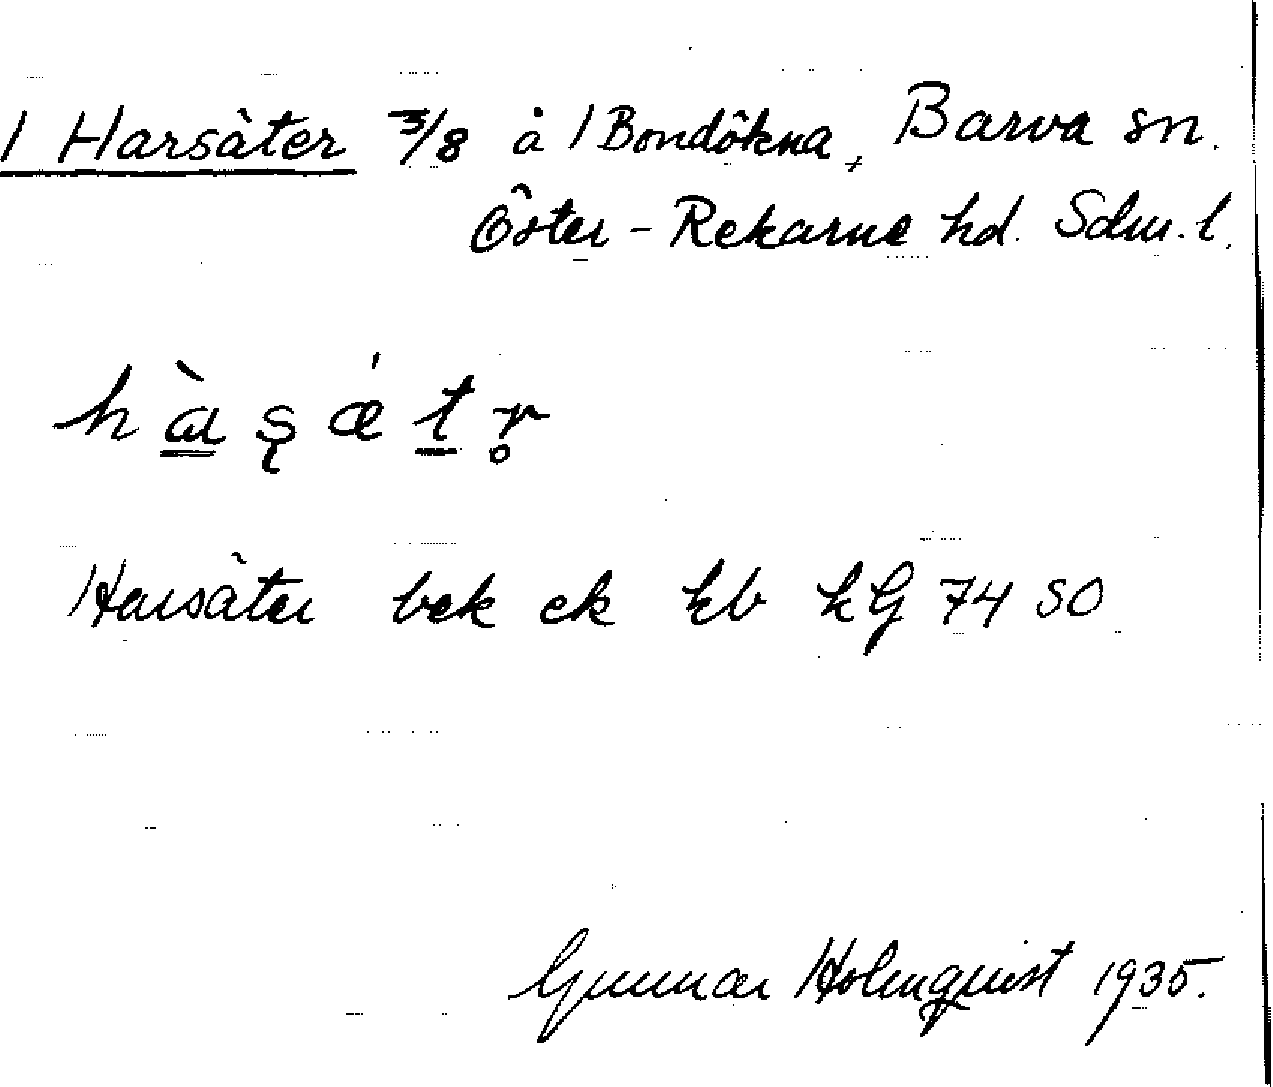 1 Harsäter 3/8 å 1 Bondökna, Barva sn.
Öster-Rekarne hd. Sdm. l.
hàṣǽtr̥
Harsäter bek ek kb hG 74 SO
Gunnar Holmquist 1935.